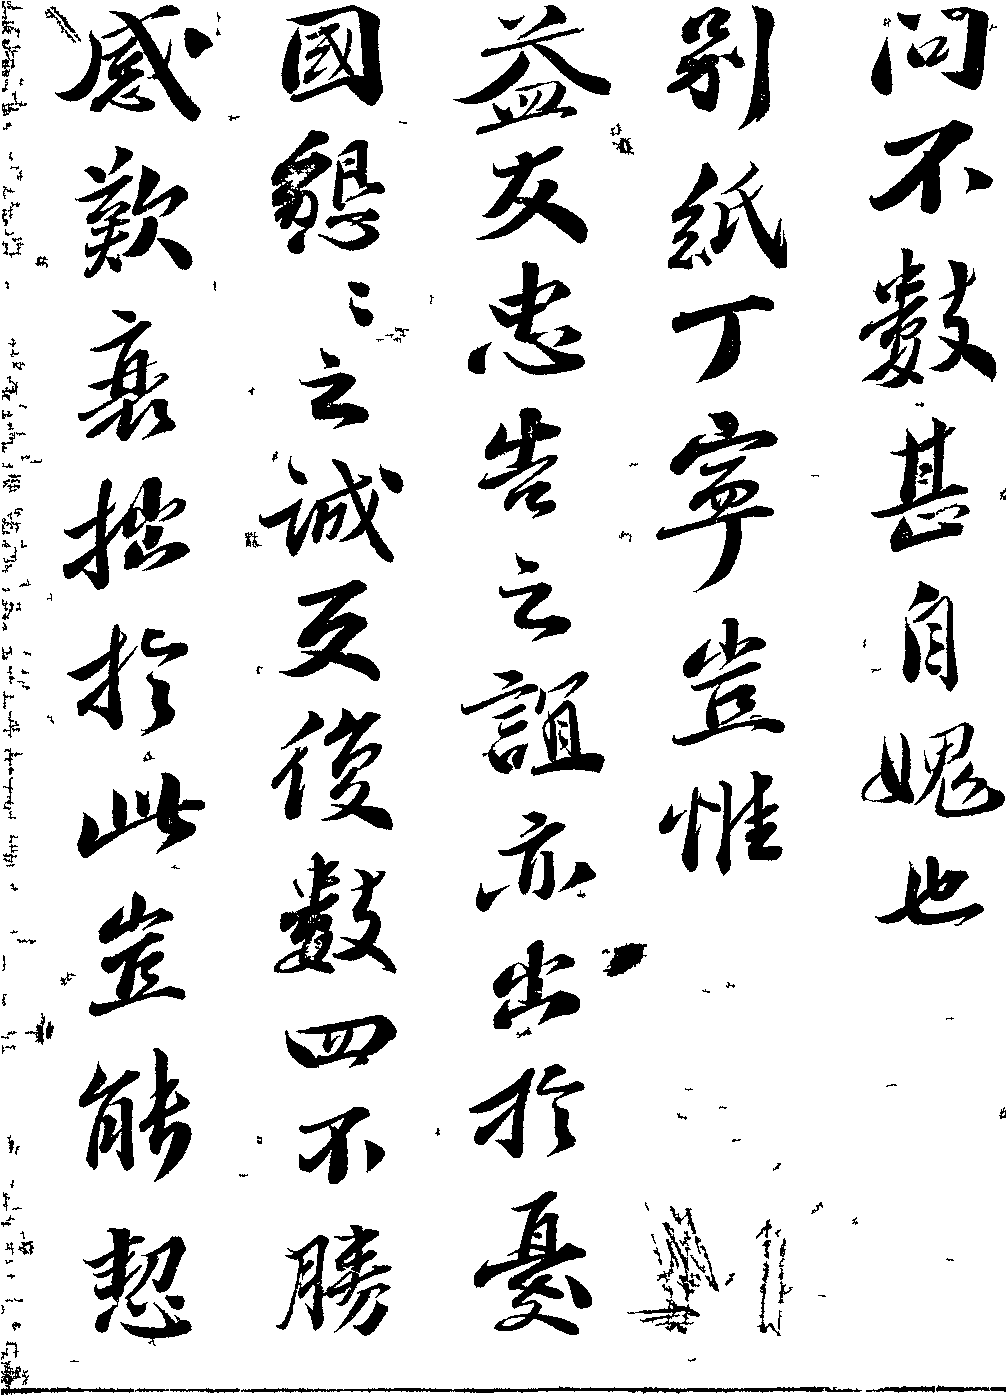 問不數甚自媿也
別紙丁寧豈惟
益友忠告之誼亦出於憂
國懇〻之誠反復數四不勝
感歎衰拙於此豈能恝